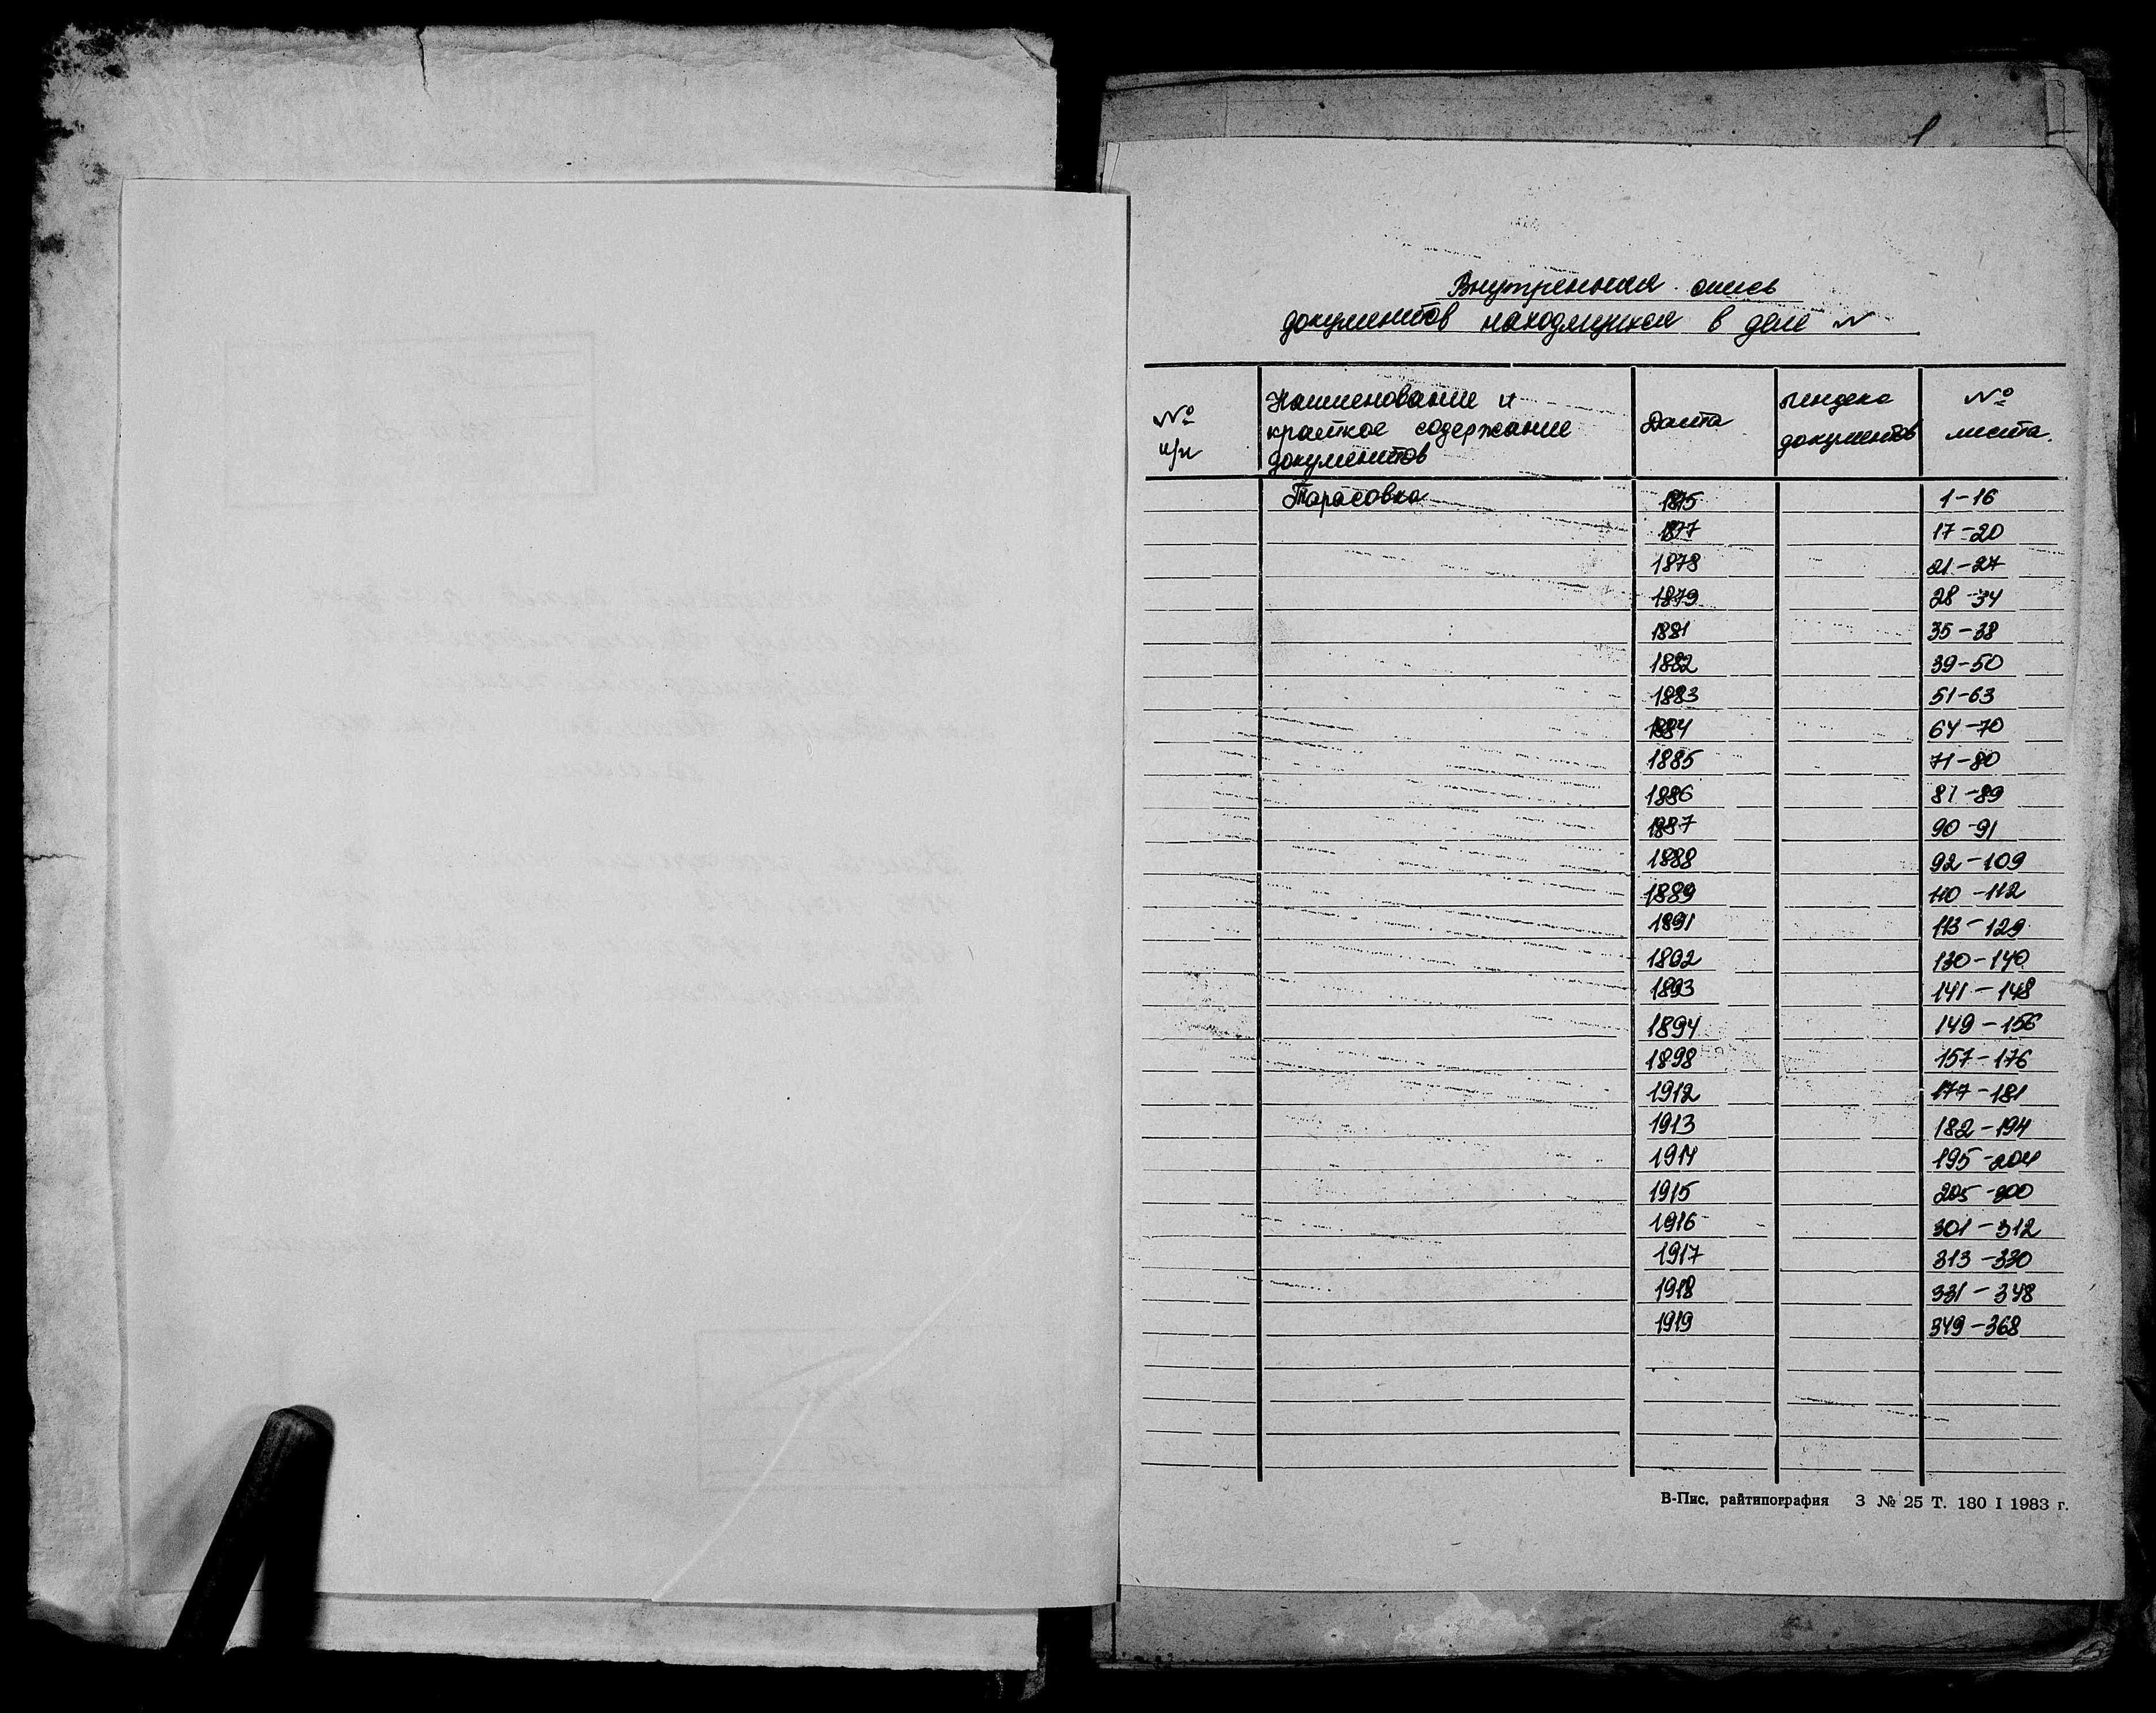 1
Внутренняя опись
документов находящихся в деле №
№ п/п
Наименование и краткое содержание документов
Дата
Индекс документов
№ листа
Тарасовка 1875 1-16
1877 17-20
1878 21-27
1879 28-34
1881 35-38
1882 39-50
1883 51-63
1884 64-70
1885 71-80
1886 81-89
1887 90-91
1888 92-109
1889 110-112
1891 113-129
1892 130-140
1893 141-148
1894 149-156
1898 157-176
1912 177-181
1913 182-194
1914 195-204
1915 205-300
1916 301-312
1917 313-330
1918 331-348
1919 349-368
В-Пис. райтипография З № 25 Т. 180 I 1983 г.